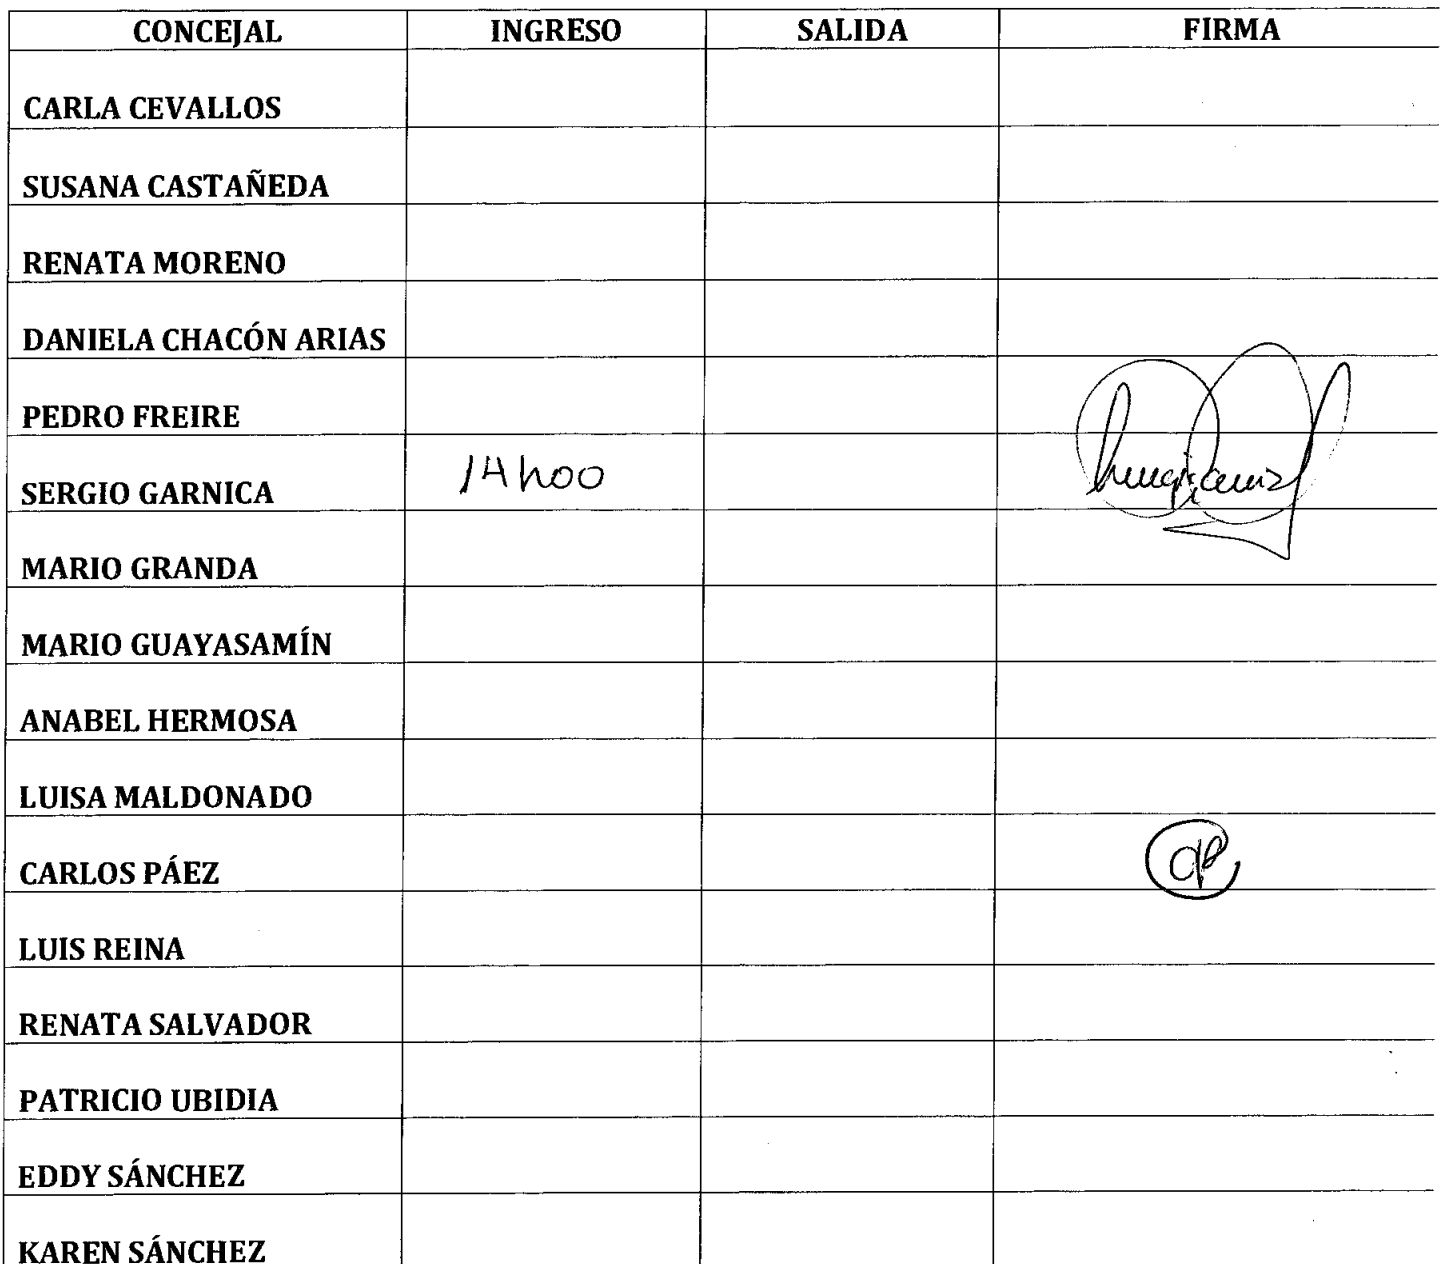 CONCEJAL INGRESO SALIDA FIRMA
CARLA CEVALLOS
SUSANA CASTAÑEDA
RENATA MORENO
DANIELA CHACÓN ARIAS
PEDRO FREIRE
SERGIO GARNICA 14h00
MARIO GRANDA
MARIO GUAYASAMÍN
ANABEL HERMOSA
LUISA MALDONADO
CARLOS PÁEZ
LUIS REINA
RENATA SALVADOR
PATRICIO UBIDIA
EDDY SÁNCHEZ
KAREN SÁNCHEZ